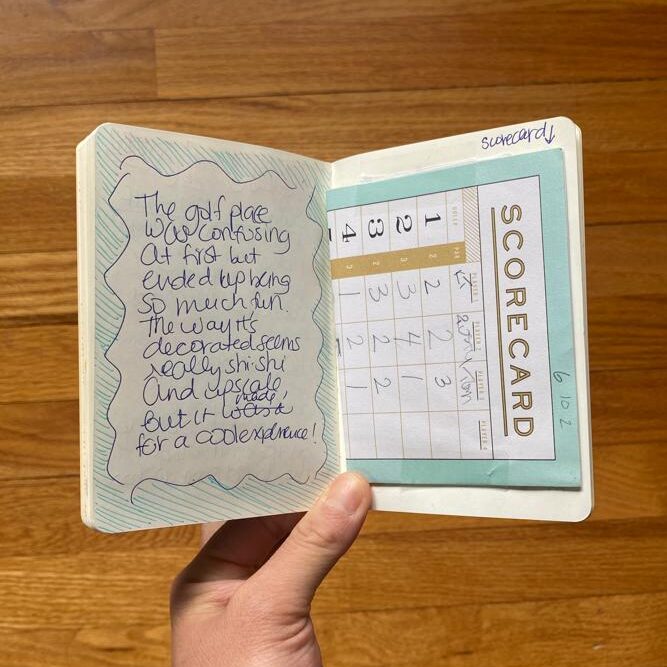 The golf place
was confusing
at first but
ended up being
so much fun.
The way it's
decorated seems
really shi shi
and upscale,
but it made
for a cool experience!
scorecard
SCORECARD
HOLE 1 2 3 4
PAR
PLAYER 1 2 3 3 1
PLAYER 2 2 4 2 2
PLAYER 3 Tom 3 1 2 1
PLAYER 4